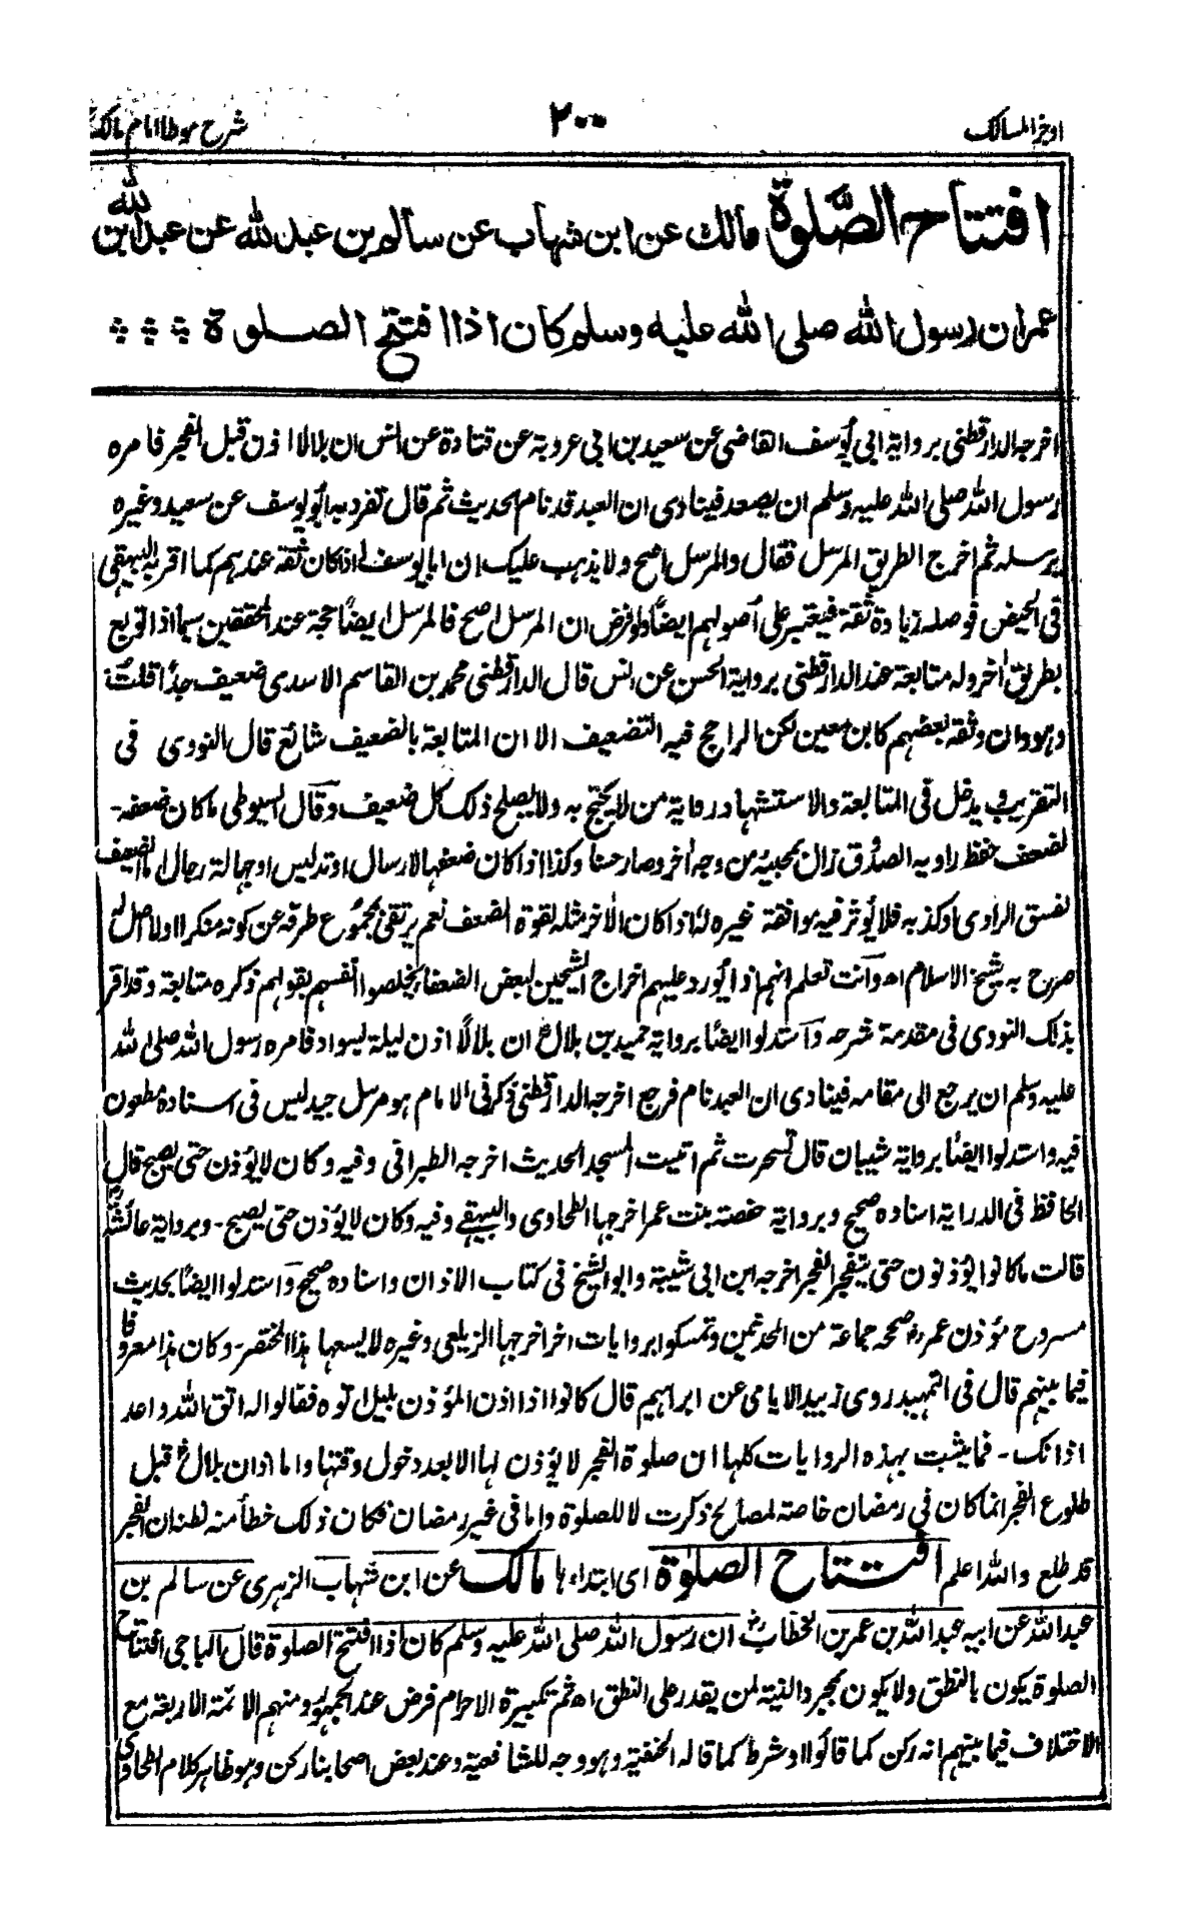 اوجز المسالك ٢٠٠ شرح موطا امام مالك
افتتاح الصلوة مالك عن ابن شهاب عن سالم بن عبد الله عن عبد الله بن
عمر ان رسول الله صلى الله عليه وسلم كان اذا افتتح الصلوة
اخرجه الدارقطني برواية ابي يوسف القاضي عن سعيد بن ابي عروبة عن قتادة عن انس ان بلالا اذن قبل الفجر فامره
رسول الله صلى الله عليه وسلم ان يصعد فينادى ان العبد قد نام الحديث ثم قال تفرد به ابو يوسف عن سعيد وغيره
يرسله ثم اخرج الطريق المرسل فقال والمرسل اصح ولا يذهب عليك ان ابا يوسف اذا كان ثقة عندهم كما اقر به البيهقي
في الحيض فوصله زيادة ثقة فيعتبر على اصولهم ايضا ولو فرض ان المرسل اصح فالمرسل ايضا حجة عند المحققين سيما اذا توبع
بطريق اخر وله متابعة عند الدارقطني برواية الحسن عن انس قال الدارقطني محمد بن القاسم الاسدى ضعيف جدا قلت
وهو وان وثقه بعضهم كابن معين لكن الراجح فيه التضعيف الا ان المتابعة بالضعيف شائع قال النووى في
التقريب و يدخل في المتابعة والاستشهاد رواية من لا يحتج به ولا يصلح ذلك كل ضعيف وقال السيوطي ما كان ضعفه
لضعف حفظ راويه الصدوق زال بمجيئه من وجه اخر وصار حسنا وكذا اذا كان ضعفها لارسال او تدليس او جهالة رجال اما الضعيف
لفسق الراوى او كذبه فلا يوثر فيه موافقة غيره له اذا كان الاخر مثله لقوة الضعف نعم يرتقى بمجموع طرقه عن كونه منكرا او لا اصل له
صرح به شيخ الاسلام اه وانت تعلم انهم اذا يورد عليهم اخراج الشيخين لبعض الضعفاء يخلصوا انفسهم بقولهم ذكره متابعة وقد اقر
بذلك النووى في مقدمة شرحه واستدلوا ايضا برواية حميد بن بلال ان بلالا اذن ليلة بسواد فامره رسول الله صلى الله
عليه وسلم ان يرجع الى مقامه فينادى ان العبد نام فرجع اخرجه الدارقطني ذكر في الامام هو مرسل جيد ليس في اسناده مطعون
فيه واستدلوا ايضا برواية شيبان قال تسحرت ثم اتيت المسجد الحديث اخرجه الطبراني وفيه وكان لا يؤذن حتى يصبح قال
الحافظ في الدراية اسناده صحيح وبرواية حفصة بنت عمر اخرجها الطحاوى والبيهقي وفيه وكان لا يؤذن حتى يصبح - وبرواية عائشة
قالت ما كانوا يؤذنون حتى ينفجر الفجر اخرجه ابن ابي شيبة وابو الشيخ في كتاب الاذان واسناده صحيح واستدلوا ايضا بحديث
مسروح مؤذن عمر صححه جماعة من المحدثين وتمسكوا بروايات اخر اخرجها الزيلعي وغيره لا يسعها هذا المختصر - وكان هذا معروفا
فيما بينهم قال في التمهيد روى زبيد الايامى عن ابراهيم قال كانوا اذا اذن المؤذن بليل اتوه فقالوا له اتق الله واعد
اذانك - فما يثبت بهذه الروايات كلها ان صلوة الفجر لا يؤذن لها الا بعد دخول وقتها واما اذان بلال قبل
طلوع الفجر انما كان في رمضان خاصة لمصالح ذكرت لا للصلوة واما في غير رمضان فكان ذلك خطأ منه لظنه ان الفجر
قد طلع والله اعلم افتتاح الصلوة اى ابتداءها مالك عن ابن شهاب الزهرى عن سالم بن
عبد الله عن ابيه عبد الله بن عمر بن الخطاب ان رسول الله صلى الله عليه وسلم كان اذا افتتح الصلوة قال الباجى افتتاح
الصلوة يكون بالنطق ولا يكون بمجرد النية لمن يقدر على النطق اه ثم تكبيرة الاحرام فرض عند الجمهور ومنهم الائمة الاربعة مع
الاختلاف فيما بينهم انه ركن كما قالوا او شرط كما قاله الحنفية وهو وجه للشافعية وعند بعض اصحابنا ركن وهو ظاهر كلام الطحاوى